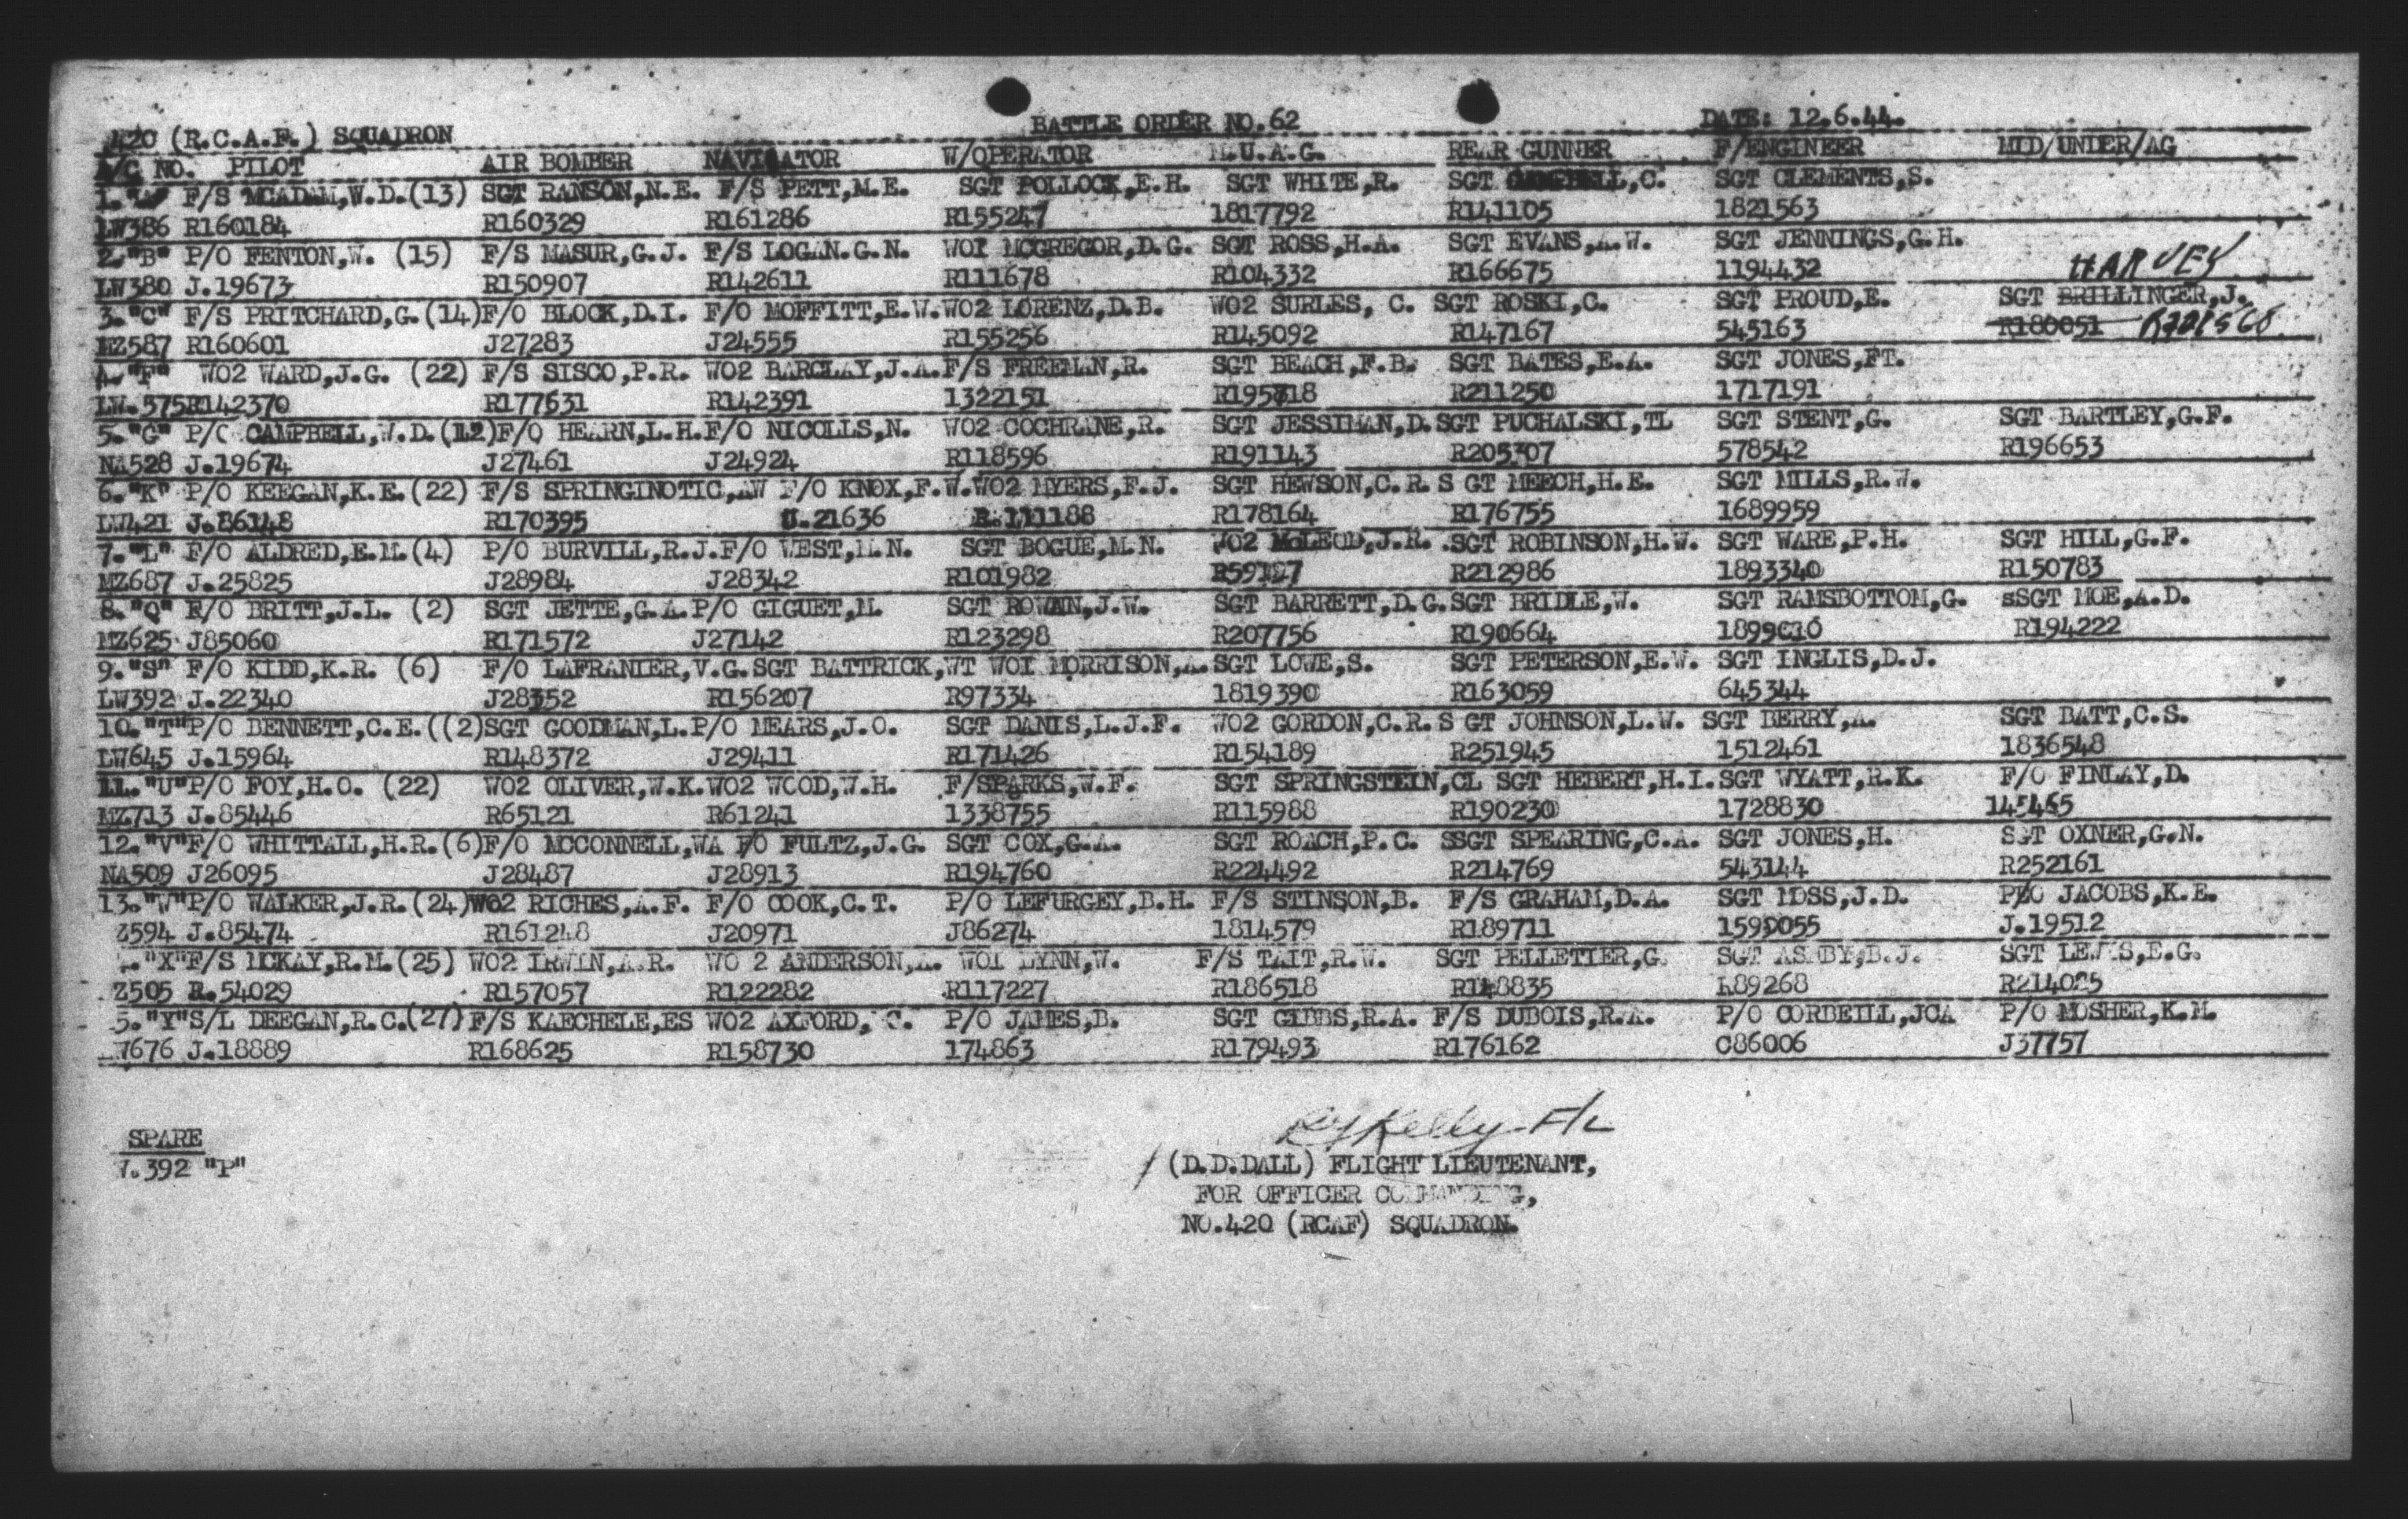 420 (R.C.A.F.) SQUADRON BATTLE ORDER NO.62 DATE: 12.6.44.
A/C NO. PILOT AIR BOMBER NAVIGATOR W/OPERATOR M.U.A.G. REAR GUNNER F/ENGINEER MID/UNDER/AG
1."A" F/S MCADAM,W.D.(13) SGT RANSON,N.E. F/S PETT,M.E. SGT POLLOCK,E.H. SGT WHITE,R. SGT CAMPBELL,C. SGT CLEMENTS,S.
LW386 R160184 R160329 R161286 R155247 1817792 R141105 1821563
2."B" P/O FENTON,W. (15) F/S MASUR,G.J. F/S LOGAN.G.N. WO1 MCGREGOR,D.G. SGT ROSS,H.A. SGT EVANS,A.W. SGT JENNINGS,G.H.
LW380 J.19673 R150907 R142611 R111678 R104332 R166675 1194432 HARVEY
3."C" F/S PRITCHARD,G.(14)F/O BLOCK,D.I. F/O MOFFITT,E.W.WO2 LORENZ,D.B. WO2 SURLES, C. SGT ROSKI,C. SGT PROUD,E. SGT BRILLINGER,J.
MZ587 R160601 J27283 J24555 R155256 R145092 R147167 545163 R180051
4."F" WO2 WARD,J.G. (22) F/S SISCO,P.R. WO2 BARCLAY,J.A.F/S FREEMAN,R. SGT BEACH,F.B. SGT BATES,E.A. SGT JONES,FT.
LW.575R142370 R177631 R142391 1322151 R211250 1717191
5."G" P/O CAMPBELL,W.D.(12)F/O HEARN,L.H.F/O NICOLLS,N. WO2 COCHRANE,R. SGT JESSIMAN,D.SGT PUCHALSKI,TL SGT STENT,G. SGT BARTLEY,G.F.
NA528 J.19674 J27461 J24924 R118596 R191143 R205307 578542 R196653
6."K" P/O KEEGAN,K.E.(22) F/S SPRINGINOTIC,AW F/O KNOX,F.W.WO2 MYERS,F.J. SGT HEWSON,C.R.S GT MEECH,H.E. SGT MILLS,R.W.
LW421 J.86148 R170395 J.21636 R.111188 R178164 R176755 1689959
7."L" F/O ALDRED,E.M.(4) P/O BURVILL,R.J.F/O WEST,M.N. SGT BOGUE,M.N. WO2 McLEOD,J.R. .SGT ROBINSON,H.W. SGT WARE,P.H. SGT HILL,G.F.
MZ687 J.25825 J28984 J28342 R101982 R212986 1893340 R150783
8."Q" F/O BRITT,J.L. (2) SGT JETTE,G.A.P/O GIGUET,M. SGT ROWAN,J.W. SGT BARRETT,D.G.SGT BRIDLE,W. SGT RAMSBOTTOM,G. sSGT MOE,A.D.
MZ625 J85060 R171572 J27142 R123298 R207756 R190664 R194222
9."S" F/O KIDD,K.R. (6) F/O LAFRANIER,V.G.SGT BATTRICK,WT WO1 MORRISON,A.SGT LOWE,S. SGT PETERSON,E.W. SGT INGLIS,D.J.
LW392 J.22340 J28352 R156207 R97334 1819390 R163059 645344
10."T"P/O BENNETT,C.E.((2)SGT GOODMAN,L.P/O MEARS,J.O. SGT DANIS,L.J.F. WO2 GORDON,C.R.S GT JOHNSON,L.W. SGT BERRY,A. SGT BATT,C.S.
LW645 J.15964 R148372 J29411 R171426 R154189 R251945 1512461 1836548
11."U"P/O FOY,H.O. (22) WO2 OLIVER,W.K.WO2 WOOD,W.H. F/SPARKS,W.F. SGT SPRINGSTEIN,CL SGT HEBERT,H.I.SGT WYATT,R.K. F/O FINLAY,D.
MZ713 J.85446 R65121 R61241 1338755 R115988 R190230 1728830 145465
12."V"F/O WHITTALL,H.R.(6)F/O MCCONNELL,WA F/O FULTZ,J.G. SGT COX,G.A. SGT ROACH,P.C. SSGT SPEARING,C.A. SGT JONES,H. SGT OXNER,G.N.
NA509 J26095 J28487 J28913 R194760 R224492 R214769 543144 R252161
13."W"P/O WALKER,J.R.(24)WO2 RICHES,A.F. F/O COOK,C.T. P/O LEFURGEY,B.H. F/S STINSON,B. F/S GRAHAM,D.A. SGT MOSS,J.D. P/O JACOBS,K.E.
Z594 J.85474 R161248 J20971 J86274 1814579 R189711 1590055 J.19512
"X"F/S MCKAY,R.M.(25) WO2 IRWIN,A.R. WO 2 ANDERSON,A. WO1 LYNN,W. F/S TAIT,R.W. SGT PELLETIER,G. SGT ASHBY,B.J. SGT LEWIS,E.G.
Z505 R.54029 R157057 R122282 R117227 R186518 R148835 R89268 R214025
5."Y"S/L DEEGAN,R.C.(27)F/S KAECHELE,ES WO2 AXFORD, C. P/O JAMES,B. SGT GIBBS,R.A. F/S DUBOIS,R.A. P/O CORBEILL,JCA P/O MOSHER,K.M.
W676 J.18889 R168625 R158730 174863 R179493 R176162 C86006 J37757
SPARE
392 "P"
Kelly F/L
(D.D.DALL) FLIGHT LIEUTENANT,
FOR OFFICER COMMANDING,
NO.420 (RCAF) SQUADRON.